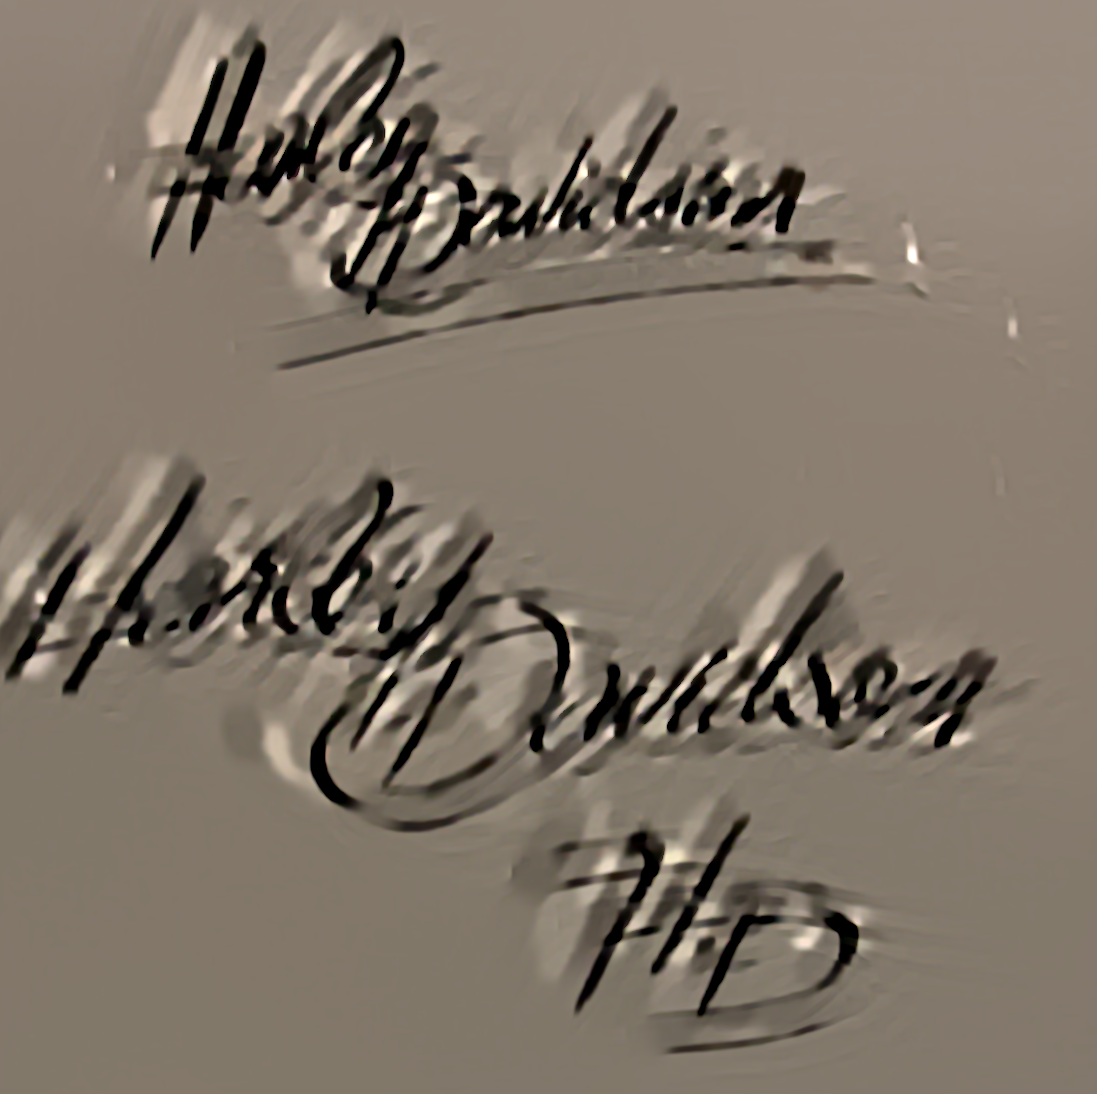 Harley Davidson
Harley Davidson
HD